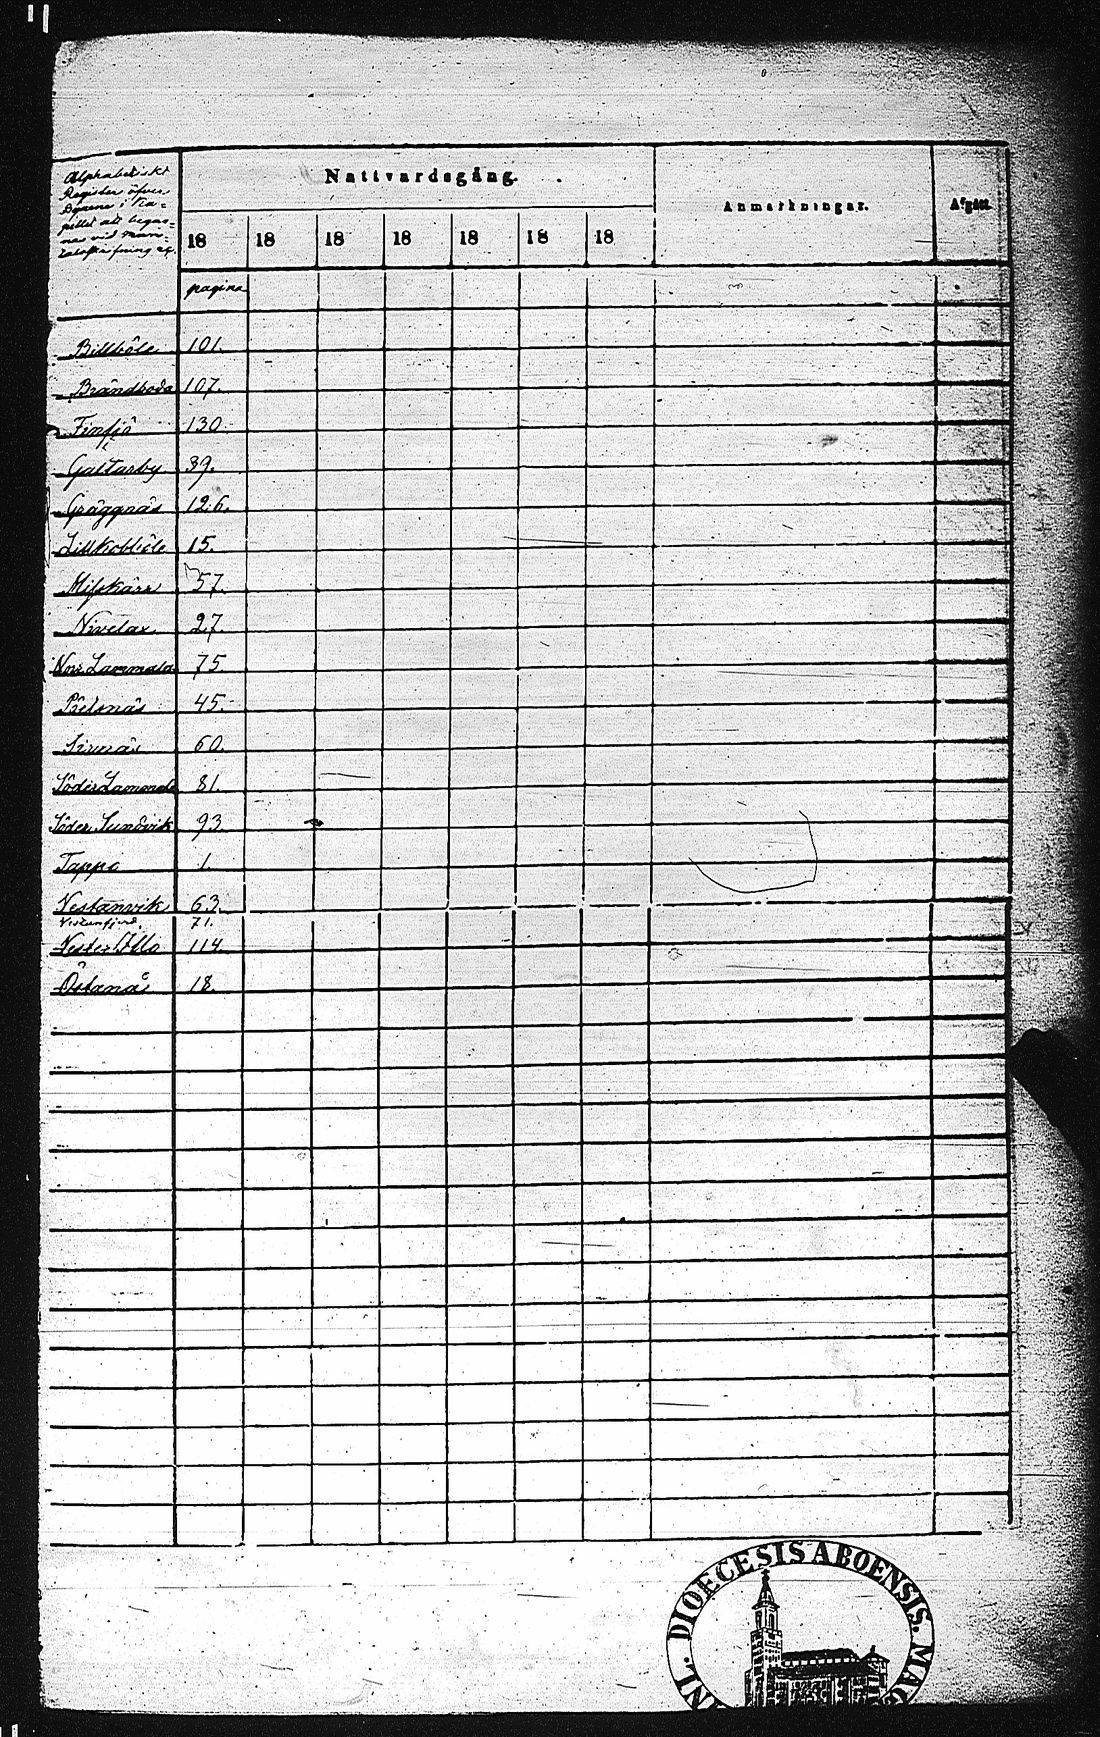 Alphabetiskt
Register öfver
Byarne i Ka-
pellet att begag-
nas vid Man-
talsskrifning etc.
Nattvardsgång.
Anmärkningar.
Afgått.
18 18 18 18 18 18 18
pagina
Billböle 101.
Brändboda 107.
Finsjö 130.
Galtarby 39.
Gräggnäs 126.
Lillkobböle 15.
Misskärr 57.
Nivelax 27.
Norr Lammala 75.
Pielsnäs 45.
Sirnäs 60.
Söder Lammala 81.
Söder Sundvik 93.
Tappo 1.
Vestanvik 63.
Vestanfjerd 71.
Vester Öllo 114.
Östanå 18.
DIOECESIS ABOENSIS. MAG